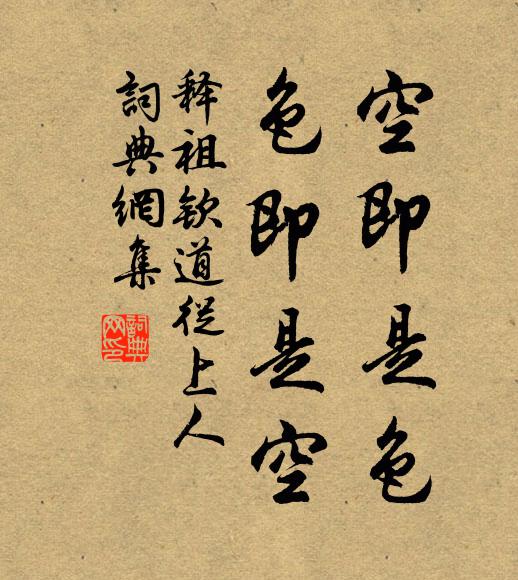 空即是色
色即是空
释祖钦道從上人
詞典網集
詞典
网印